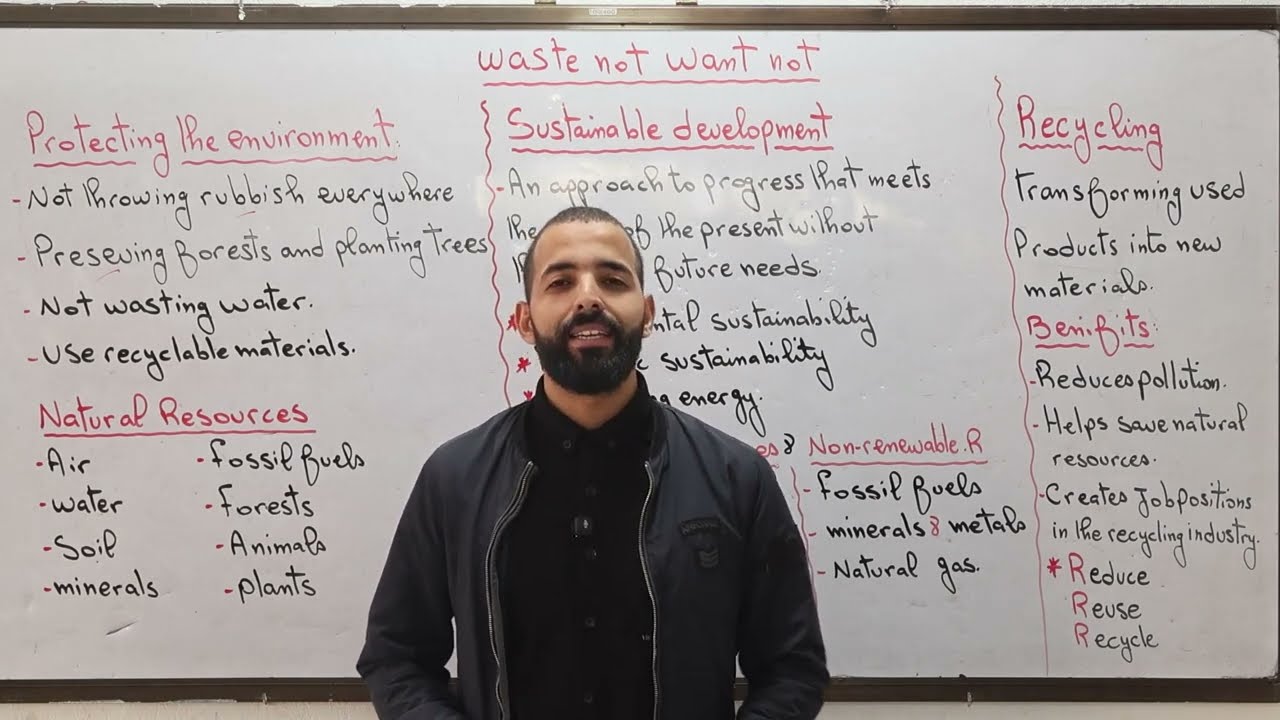 waste not want not
Protecting the environment:
- Not throwing rubbish everywhere
- Preseving forests and planting trees
- Not wasting water.
- Use recyclable materials.
Natural Resources
- Air
- water
- Soil
- minerals
- fossil fuels
- forests
- Animals
- plants
Sustainable development
- An approach to progress that meets
the of the present without
future needs.
* ntal sustainability
* c sustainability
* energy.
es & Non-renewable.R
- fossil fuels
- minerals & metals
- Natural gas.
Recycling
transforming used
Products into new
materials.
Benifits:
- Reduces pollution.
- Helps save natural
resources.
- Creates Job positions
in the recycling industry.
* Reduce
Reuse
Recycle